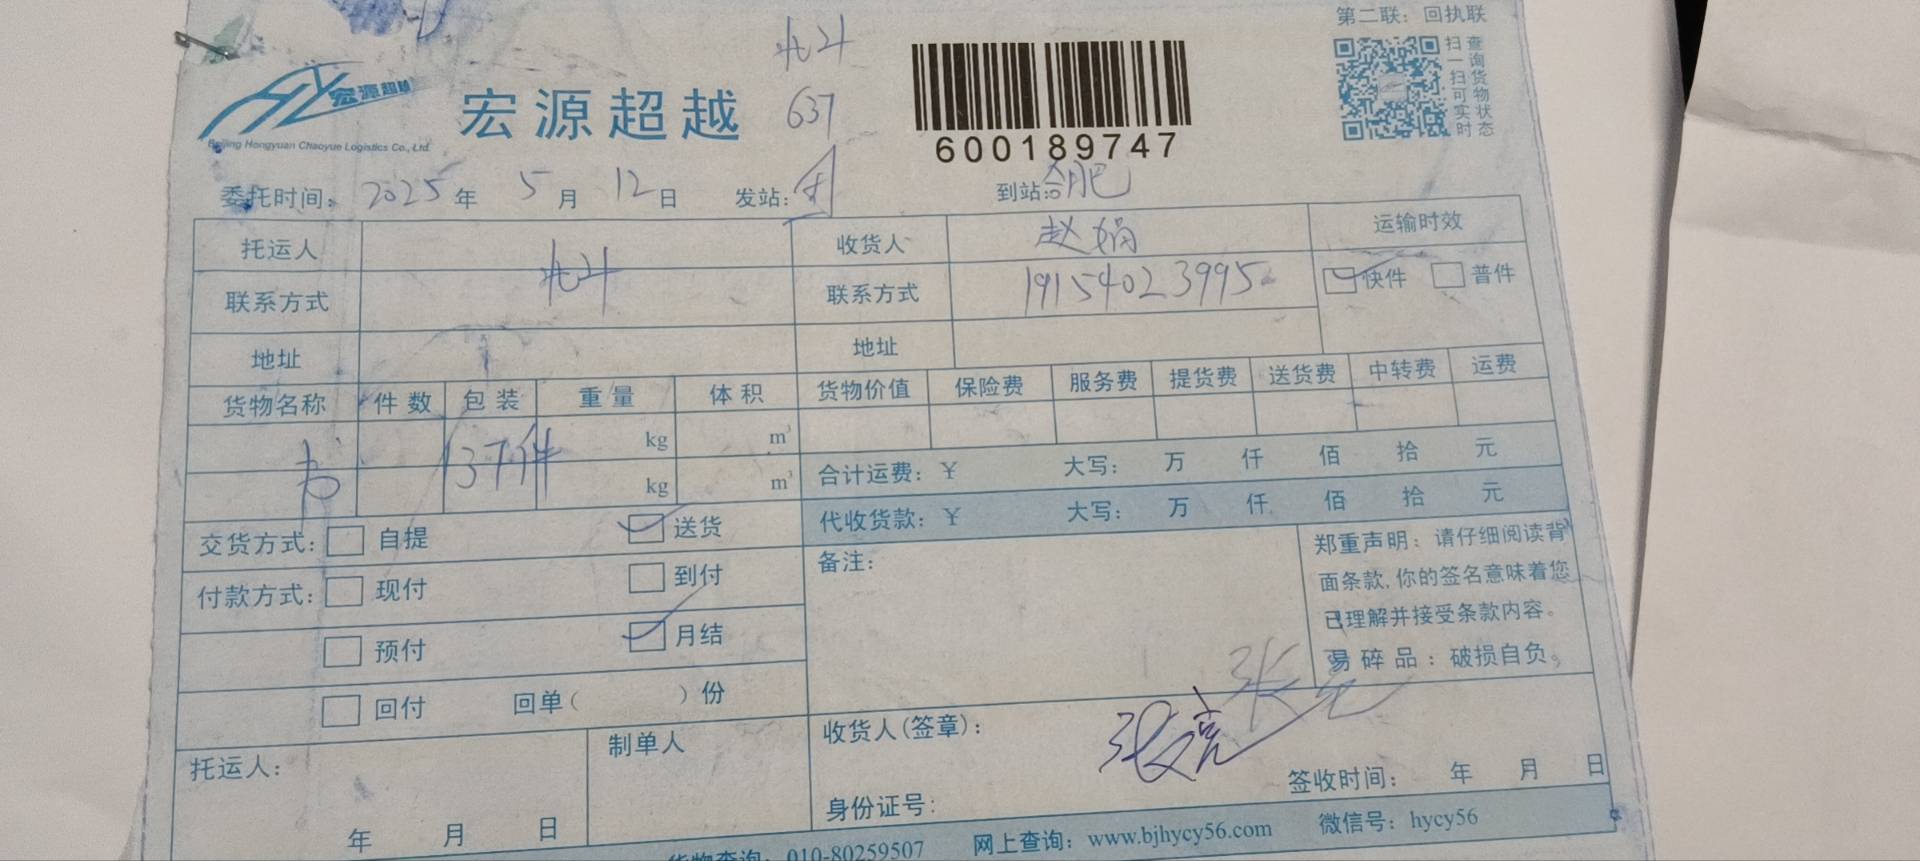 第二联：回执联
北斗
宏源超越
宏源超越
637
Beijing Hongyuan Chaoyue Logistics Co., Ltd.
600189747
查询货物状态
扫一扫可实时
委托时间： 2025 年 5 月 12 日 发站： 到站： 合肥
托运人 北斗 收货人 赵娟 运输时效
联系方式 联系方式 19154023995 快件 普件
地址 地址
货物名称 件数 包装 重量 体积 货物价值 保险费 服务费 提货费 送货费 中转费 运费
书 137件 kg m³
kg m³
合计运费：￥ 大写： 万 仟 佰 拾 元
代收货款：￥ 大写： 万 仟 佰 拾 元
交货方式： 自提 送货
付款方式： 现付 到付
预付 月结
回付 回单（ ）份
备注：
郑重声明：请仔细阅读背
面条款,你的签名意味着您
已理解并接受条款内容。
易碎品：破损自负。
张亮
托运人： 制单人 收货人(签章)： 张亮
年 月 日 身份证号： 签收时间： 年 月 日
货物查询：010-80259507 网上查询：www.bjhycy56.com 微信号：hycy56